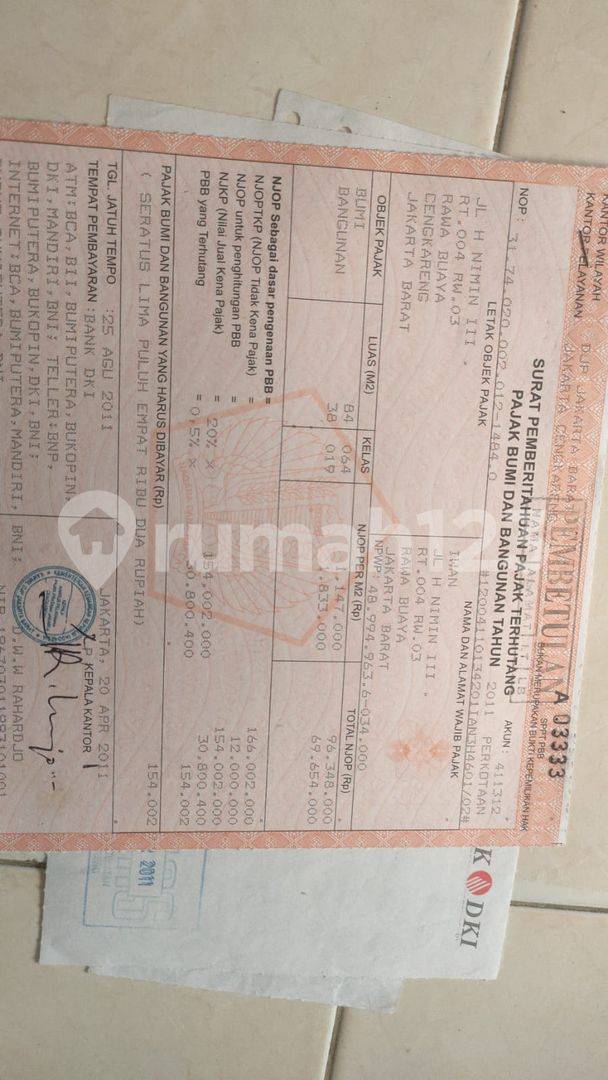 A 03333
PEMBETULAN
SPPT PBB
BUKAN MERUPAKAN BUKTI KEPEMILIKAN HAK
KANTOR WILAYAH DJP JAKARTA BARAT
KANTOR PELAYANAN JAKARTA CENGKARENG
NAMA, ALAMAT, LT, LB
SURAT PEMBERITAHUAN PAJAK TERHUTANG
PAJAK BUMI DAN BANGUNAN TAHUN 2011 PERKOTAAN
AKUN: 411312
NOP: 31.74.020.002.012-1484.0
LETAK OBJEK PAJAK
NAMA DAN ALAMAT WAJIB PAJAK
JL H NIMIN III .
RT.004 RW.03
RAWA BUAYA
CENGKARENG
JAKARTA BARAT
IWAN
JL H NIMIN III .
RT.004 RW.03
RAWA BUAYA
JAKARTA BARAT
NPWP: 48.994.963.6-034.000
OBJEK PAJAK LUAS (M2) KELAS NJOP PER M2 (Rp) TOTAL NJOP (Rp)
BUMI 84 064 1.147.000 96.348.000
BANGUNAN 38 019 1.833.000 69.654.000
NJOP Sebagai dasar pengenaan PBB = 166.002.000
NJOPTKP (NJOP Tidak Kena Pajak) = 12.000.000
NJOP untuk penghitungan PBB = 154.002.000
NJKP (Nilai Jual Kena Pajak) = 20% X 154.002.000 30.800.400
PBB yang Terhutang = 0,5% X 30.800.400 154.002
PAJAK BUMI DAN BANGUNAN YANG HARUS DIBAYAR (Rp) 154.002
( SERATUS LIMA PULUH EMPAT RIBU DUA RUPIAH)
TGL. JATUH TEMPO :25 AGU 2011
TEMPAT PEMBAYARAN :BANK DKI
ATM:BCA,BII,BUMIPUTERA,BUKOPIN
DKI,MANDIRI,BNI; TELLER:BNP,
BUMIPUTERA,BUKOPIN,DKI,BNI;
INTERNET:BCA BUMIPUTERA,MANDIRI, BNI;
JAKARTA, 20 APR 2011
KEPALA KANTOR
D.W.W RAHARDJO
DKI
2011
rumah12